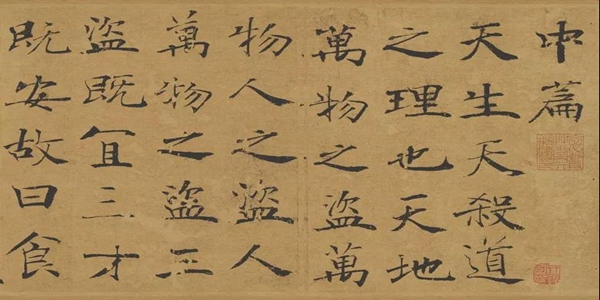 中篇
天生天殺道
之理也天地
萬物之盜萬
物人之盜人
萬物之盜三
盜既宜三才
既安故曰食